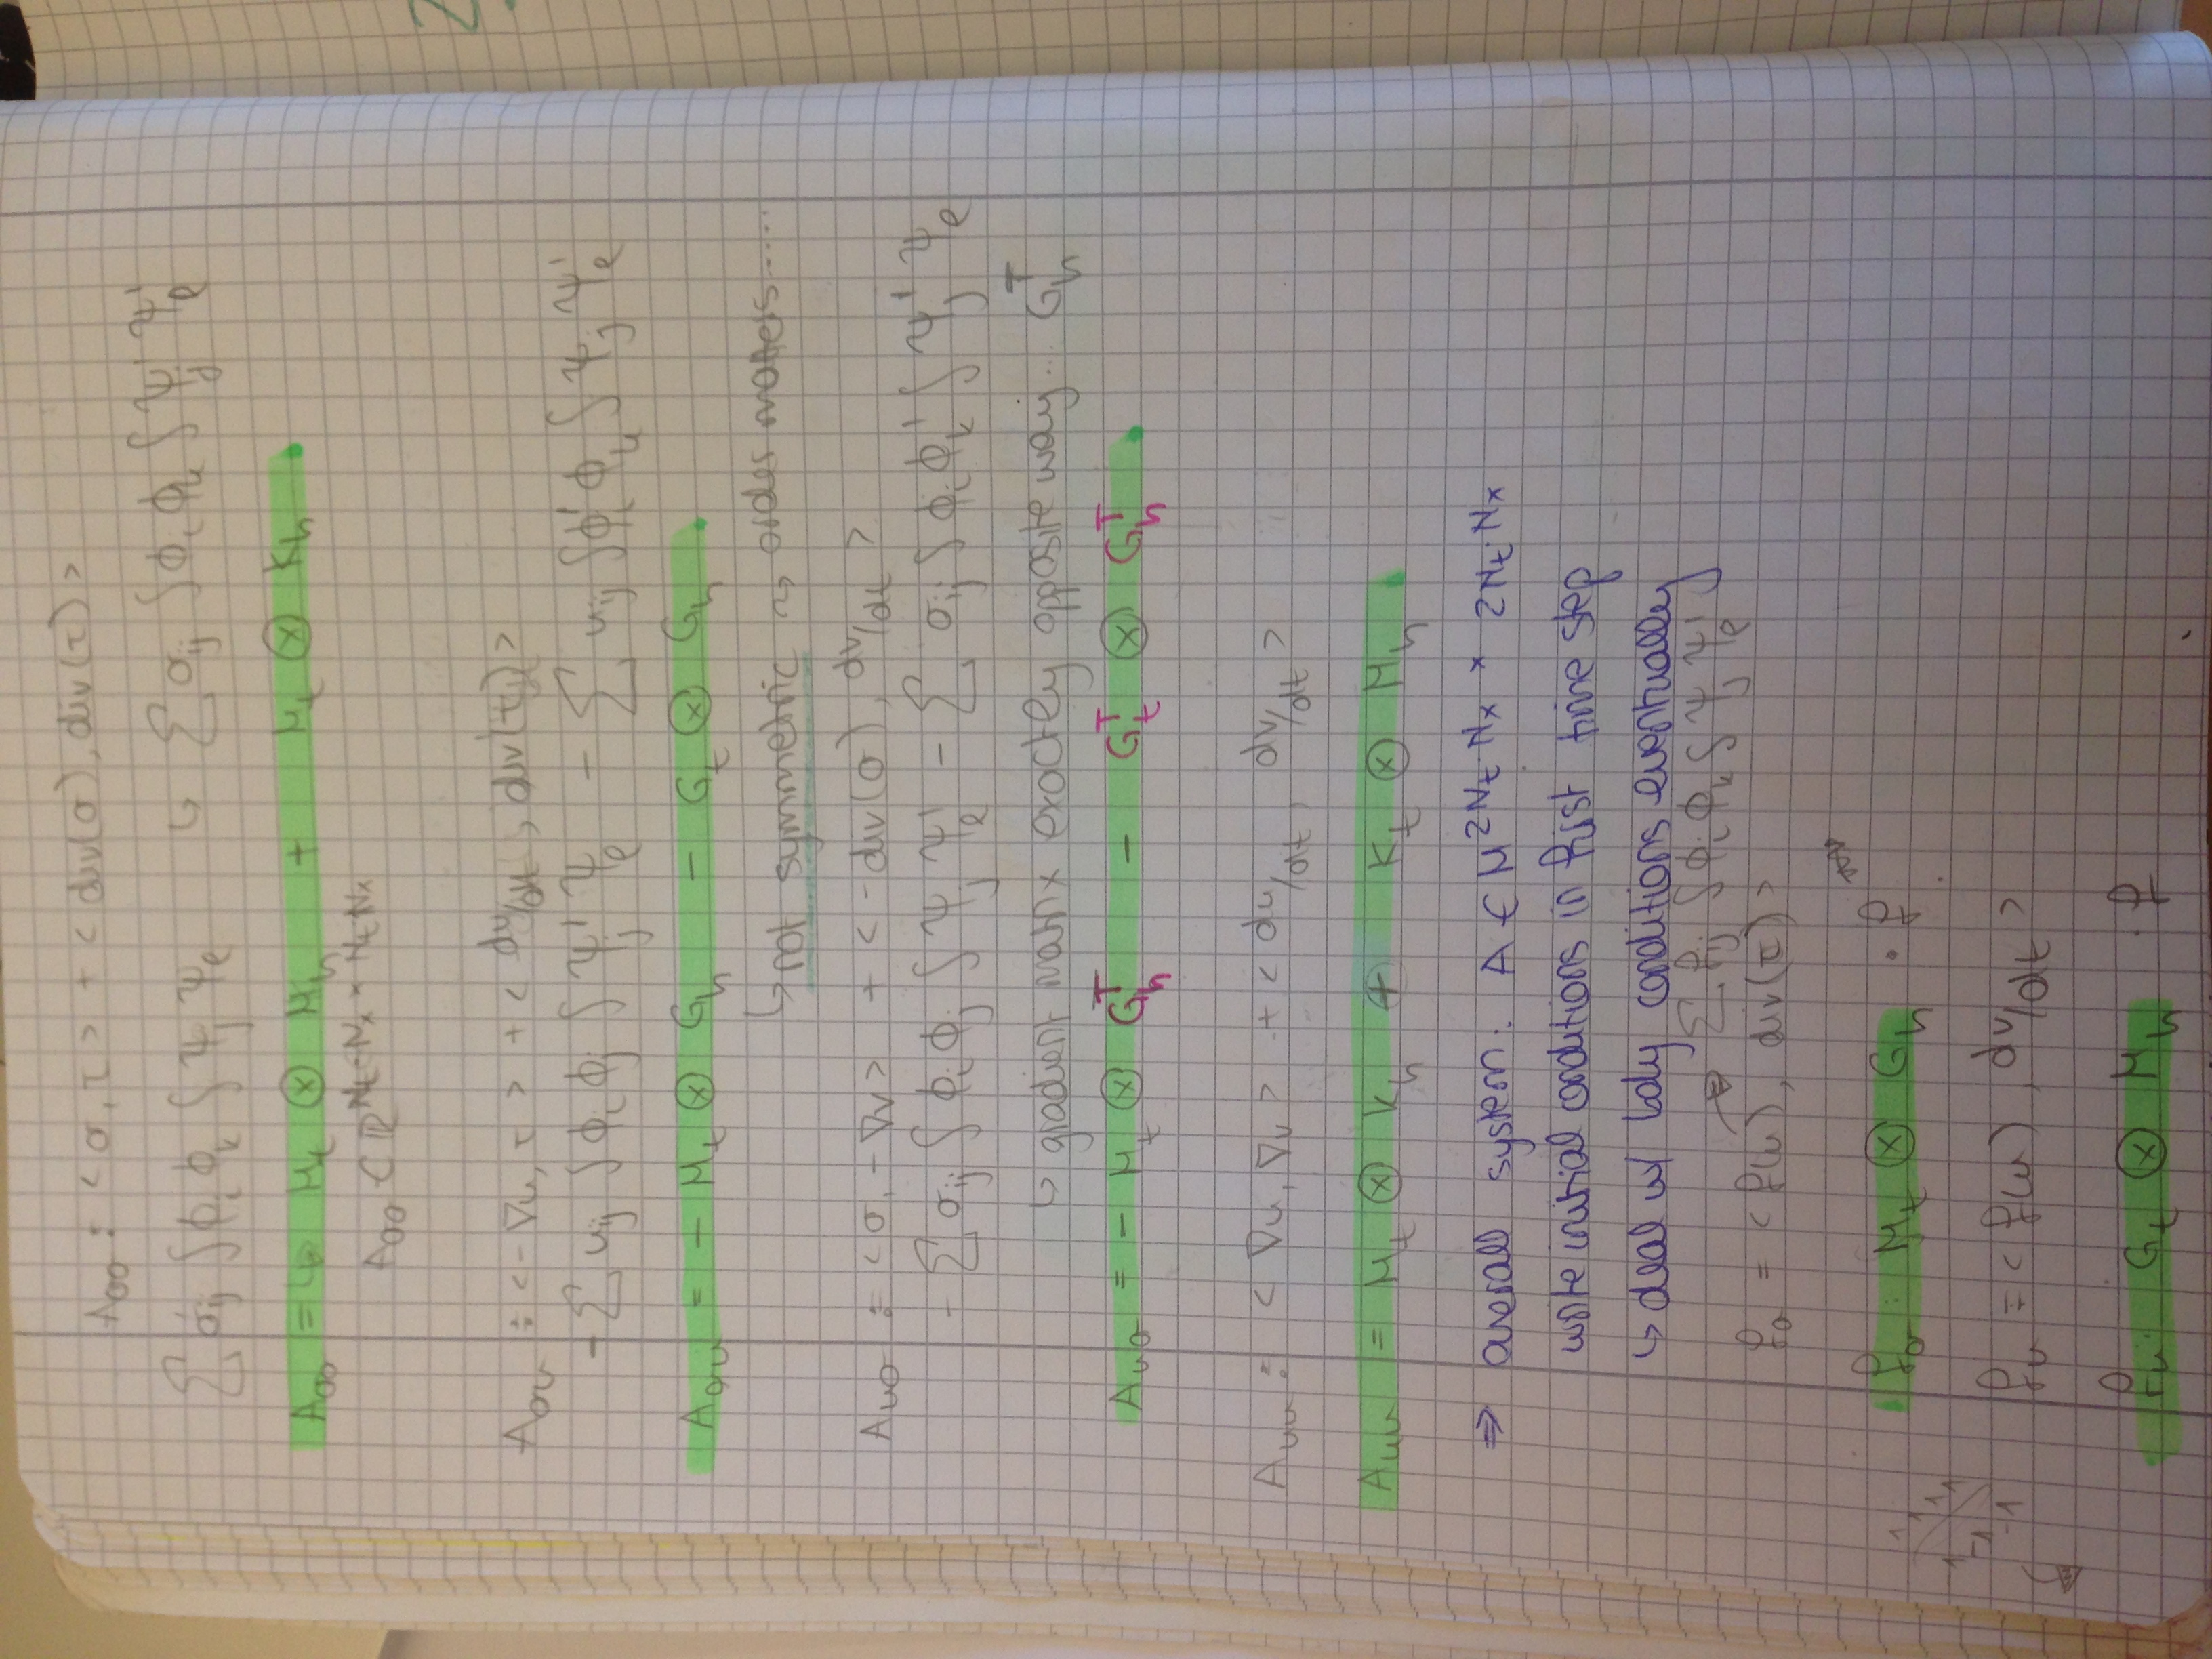 A_σσ : < σ, τ > + < div(σ), div(τ) >
∑ σ_ij ∫ φ_i φ_k ∫ ψ_j ψ_e ↳ ∑ σ_ij ∫ φ_i φ_k ∫ ψ_j' ψ_e'
A_σσ = ↳ M_t ⊗ M_h + M_t ⊗ K_h
A_σσ ∈ ℝ^{N_t·N_x × N_t N_x}
A_σu : < -∇u, τ > + < du/dt, div(τ) >
- ∑ u_ij ∫ φ_i φ_j ∫ ψ_j' ψ_e - ∑ u_ij ∫ φ_i' φ_k ∫ ψ_j ψ_e'
A_σu = - M_t ⊗ G_h - G_t ⊗ G_h
↳ not symmetric ~> order matters.....
A_uσ : < σ, -∇v > + < -div(σ), dv/dt >
- ∑ σ_ij ∫ φ_i φ_j ∫ ψ_j ψ_e' - ∑ σ_ij ∫ φ_i φ_k' ∫ ψ_j' ψ_e
↳ gradient matrix exactly opposite way... G_h^T
A_uσ = - M_t ⊗ G_h^T - G_t^T ⊗ G_h^T
A_uu : < ∇u, ∇v > + < du/dt, dv/dt >
A_uu = M_t ⊗ K_h + K_t ⊗ M_h
⇒ overall system: A ∈ M^{2N_t·N_x × 2N_t·N_x}
write initial conditions in first time step
↳ deal w/ bdy conditions eventually
⇒ ∑ f_ij ∫ φ_i φ_k ∫ ψ_j ψ_e'
f_σ = < f(u), div(τ) >
f_σ : M_t ⊗ G_h · f
f_u = < f(u), dv/dt >
f_u : G_t ⊗ M_h · f